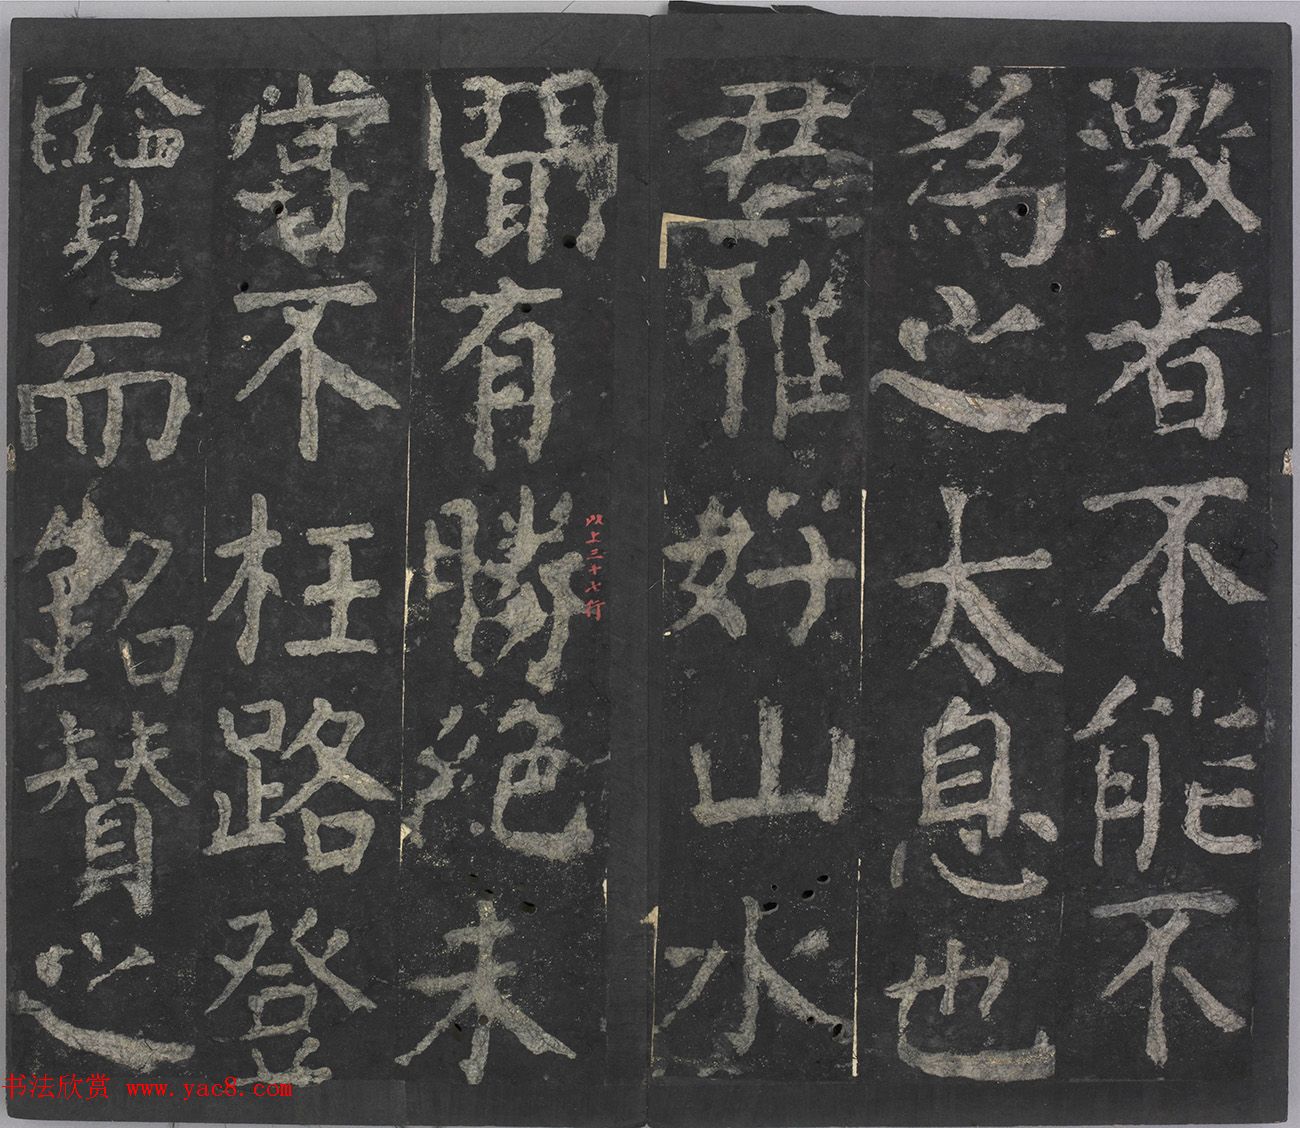 激者不能不
為之太息也
君雅好山水
聞有勝絕未
甞不枉路登
覽而銘贊之
以上三十七行
书法欣赏 www.yac8.com